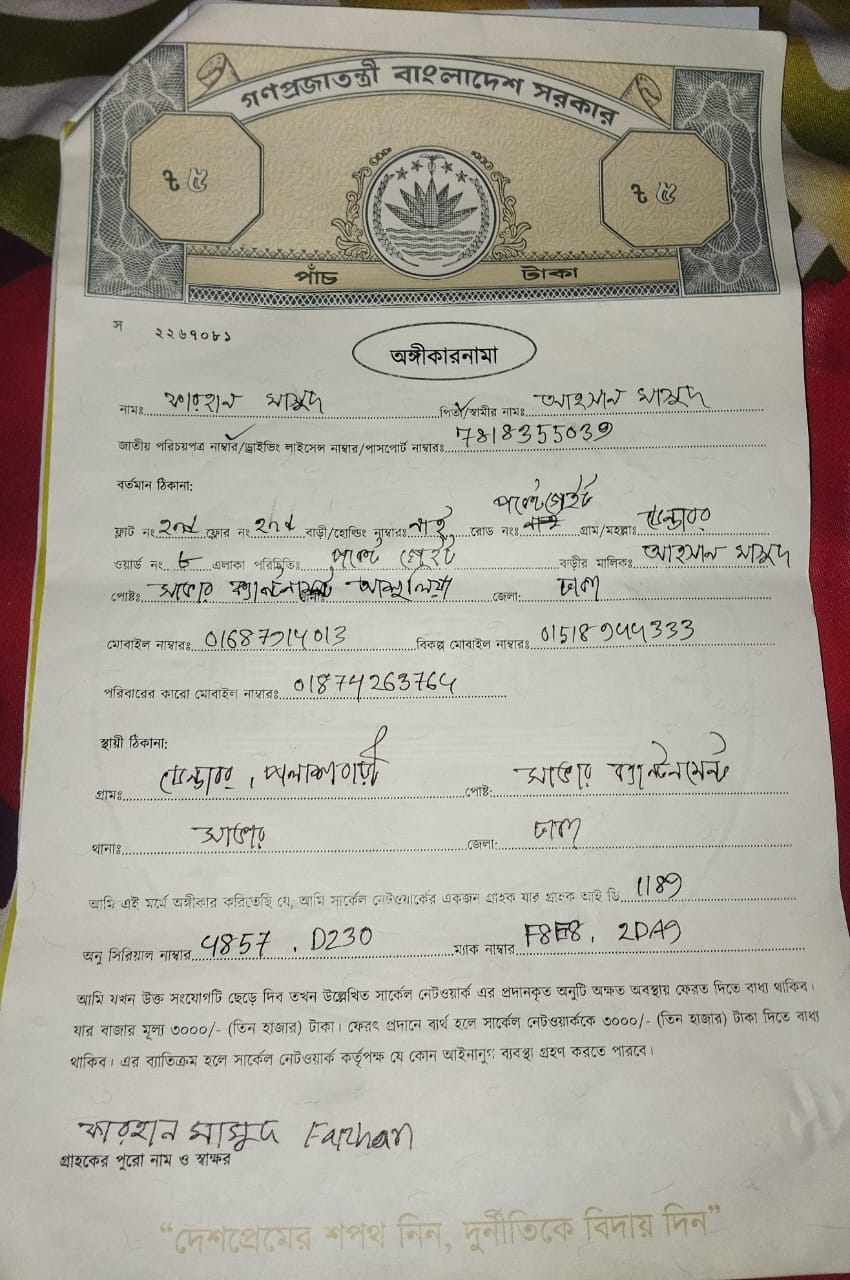 গণপ্রজাতন্ত্রী বাংলাদেশ সরকার
৳ ৫ ৳ ৫
পাঁচ টাকা
স ২২৬৭০৮১
অঙ্গীকারনামা
নামঃ ফারহান মাসুদ পিতা/স্বামীর নামঃ আহসান মাসুদ
জাতীয় পরিচয়পত্র নাম্বার/ড্রাইভিং লাইসেন্স নাম্বার/পাসপোর্ট নাম্বারঃ 7818355039
বর্তমান ঠিকানা:
পকেট গেইট
ফ্লাট নং 2nd ফ্লোর নং 2nd বাড়ী/হোল্ডিং নাম্বারঃ নাই রোড নংঃ গ্রাম/মহল্লাঃ
ওয়ার্ড নং ৮ এলাকা পরিচিতিঃ পকেট গেইট বাড়ীর মালিকঃ আহসান মাসুদ
পোষ্টঃ সাভার ক্যান্টনমেন্ট আশুলিয়া জেলা: ঢাকা
মোবাইল নাম্বারঃ বিকল্প মোবাইল নাম্বারঃ
পরিবারের কারো মোবাইল নাম্বারঃ
স্থায়ী ঠিকানা:
গ্রামঃ পলাশবাড়ী পোষ্ট: সাভার ক্যান্টনমেন্ট
থানাঃ সাভার জেলা: ঢাকা
আমি এই মর্মে অঙ্গীকার করিতেছি যে, আমি সার্কেল নেটওয়ার্কের একজন গ্রাহক যার গ্রাহক আই ডি 1189
অনু সিরিয়াল নাম্বার 4857 . D230 ম্যাক নাম্বার F8E8. 2DA9
আমি যখন উক্ত সংযোগটি ছেড়ে দিব তখন উল্লেখিত সার্কেল নেটওয়ার্ক এর প্রদানকৃত অনুটি অক্ষত অবস্থায় ফেরত দিতে বাধ্য থাকিব।
যার বাজার মূল্য ৩০০০/- (তিন হাজার) টাকা। ফেরৎ প্রদানে ব্যর্থ হলে সার্কেল নেটওয়ার্ককে ৩০০০/- (তিন হাজার) টাকা দিতে বাধ্য
থাকিব। এর ব্যাতিক্রম হলে সার্কেল নেটওয়ার্ক কর্তৃপক্ষ যে কোন আইনানুগ ব্যবস্থা গ্রহণ করতে পারবে।
ফারহান মাসুদ Farhan
গ্রাহকের পুরো নাম ও স্বাক্ষর
“দেশপ্রেমের শপথ নিন, দুর্নীতিকে বিদায় দিন”